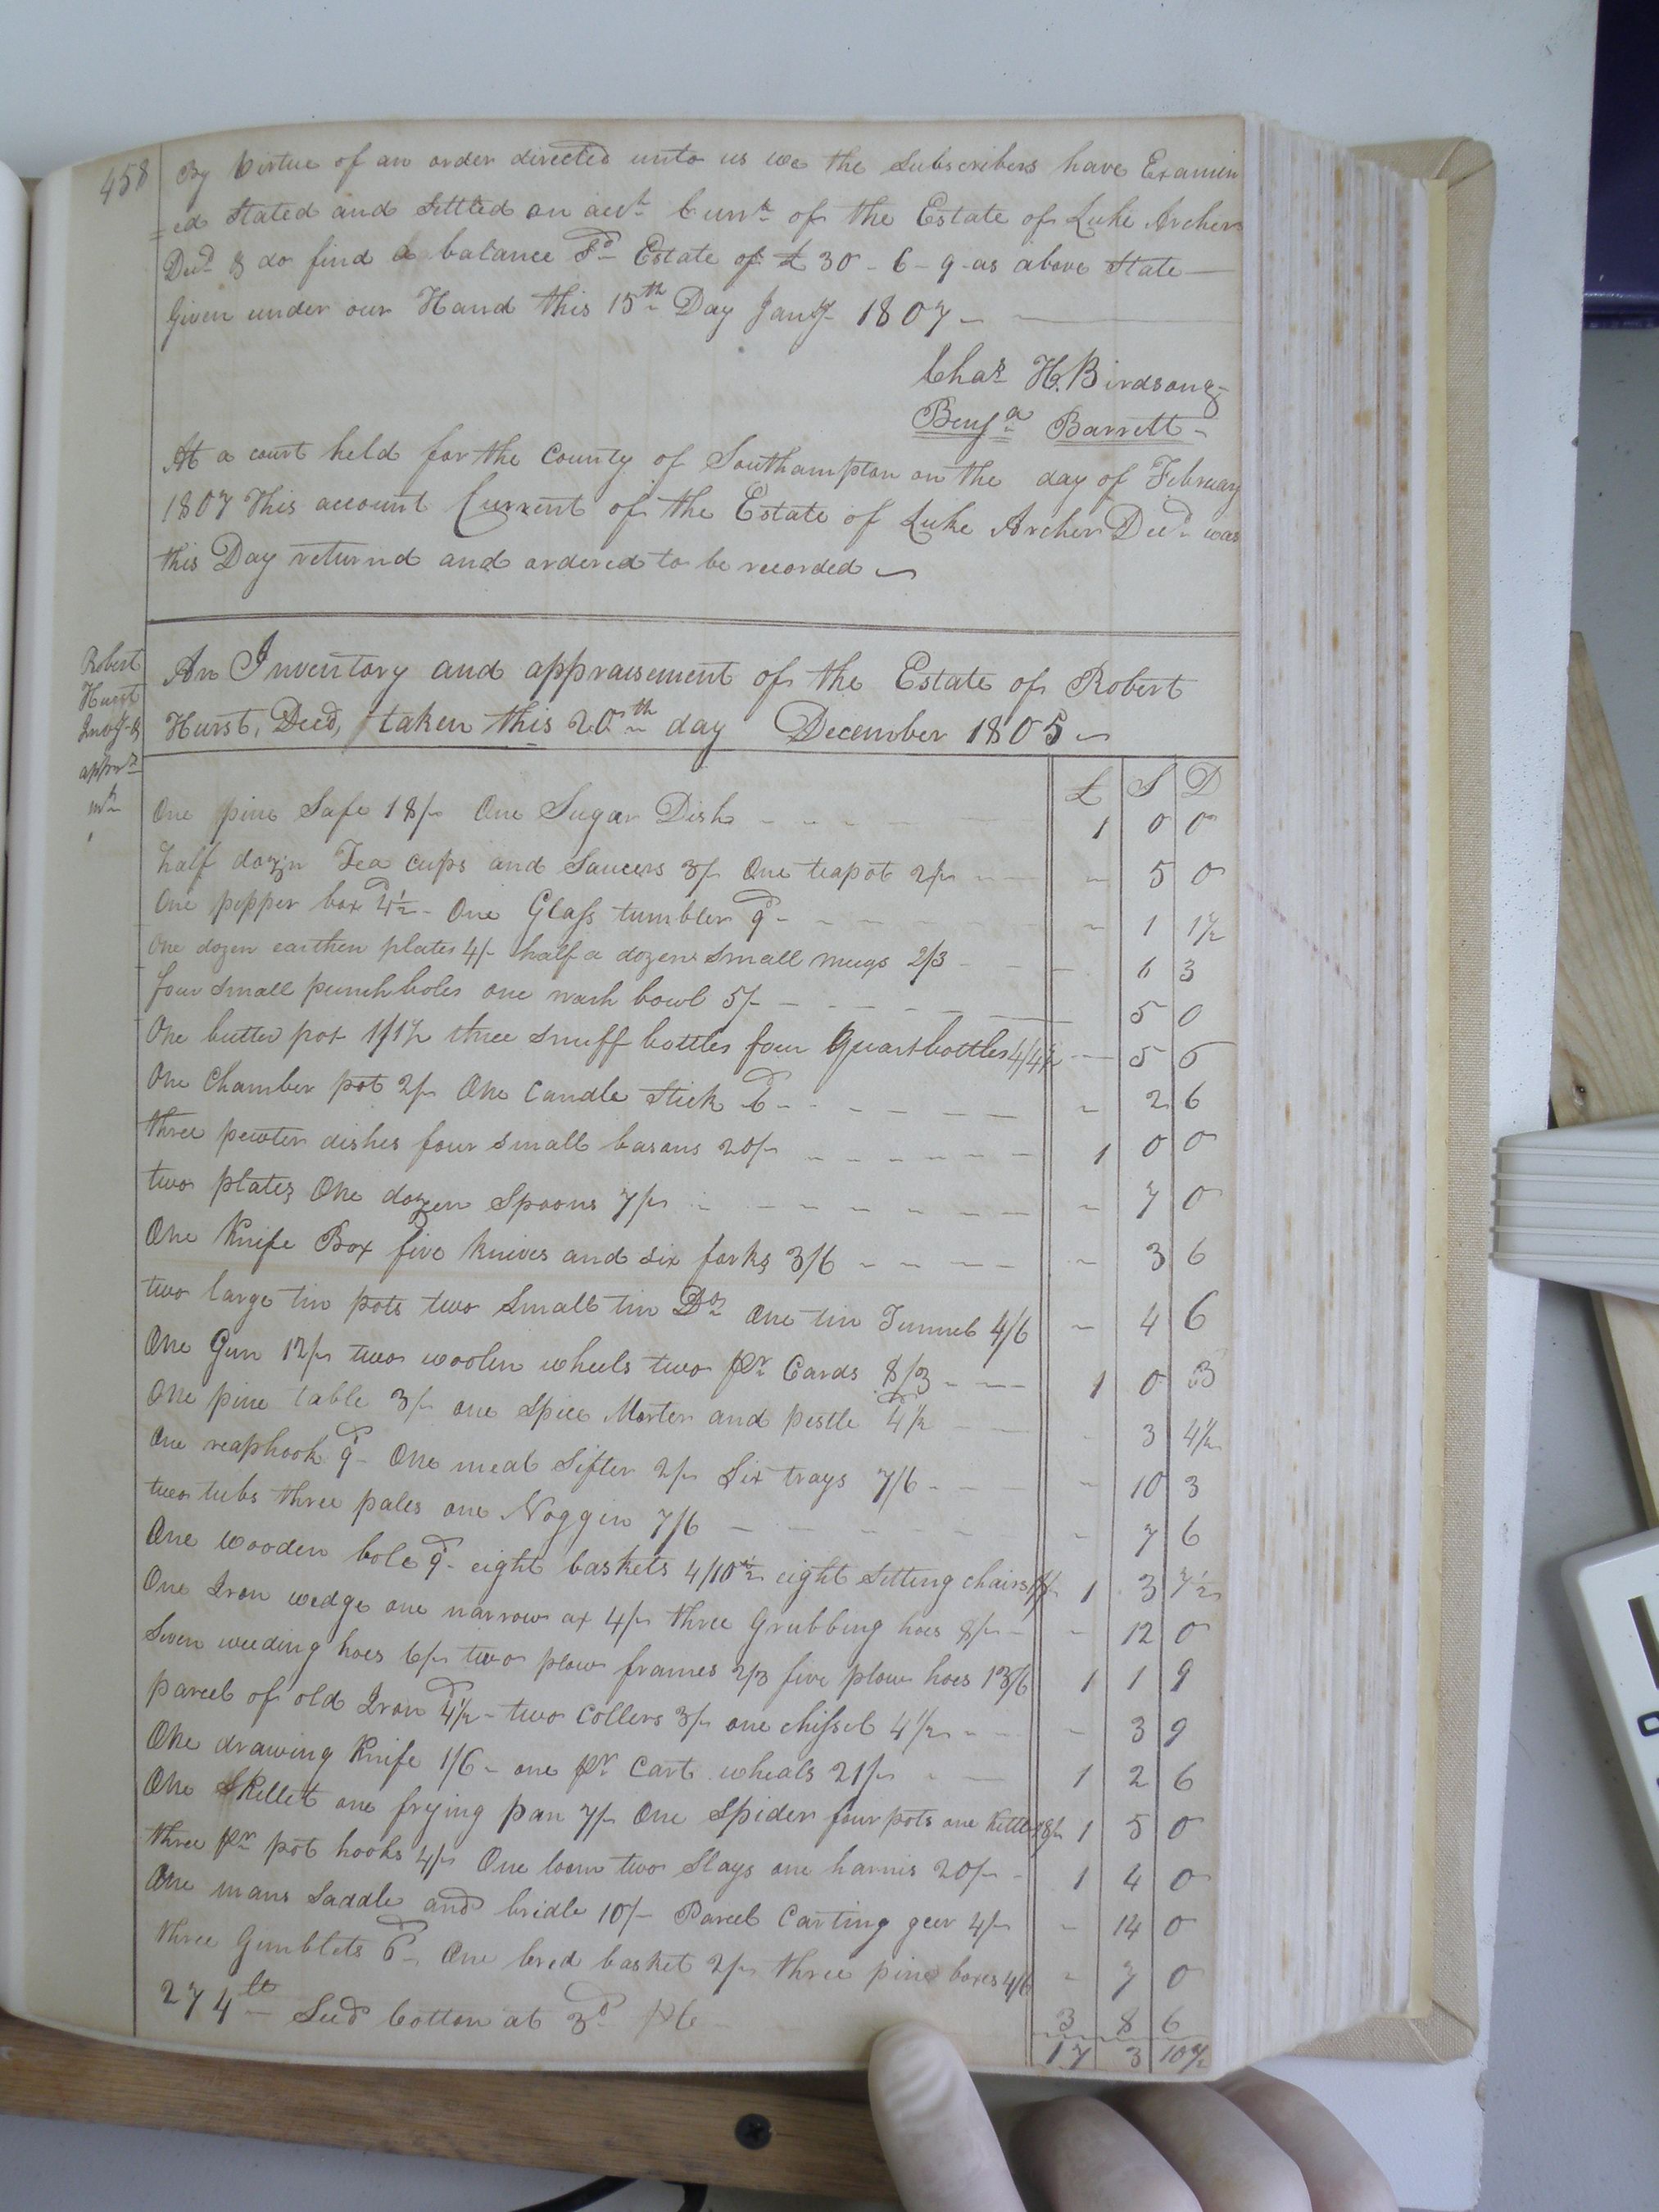 458
By Virtue of an order directed unto us we the Subscribers have Examin
=ed Stated and Settled an acct. Curnt. of the Estate of Luke Archer
Decd. & do find a balance Sd. Estate of £ 30 - 6 - 9 - as above State
Given under our Hand this 15th Day Jany 1807
Chas. H. Birdsong
Benja. Barrett
At a court held for the County of Southampton on the day of February
1807 This account Current of the Estate of Luke Archer Decd. was
this Day returnd and ordered to be recorded
Robert
Hursts
Invy. &
apprs
mt.
An Inventory and appraisement of the Estate of Robert
Hurst, Decd, taken this 20th day December 1805
£ S D
One pine Safe 18/- One Sugar Dish 1 0 0
half dozn Tea cups and Saucers 3/- One teapot 2/- - 5 0
One pepper box 4½d - One Glass tumbler 9d - 1 1½
One dozen earthen plates 4/- half a dozen small mugs 2/3 - 6 3
four small punch boles one wash bowl 5/- 5 0
One butter pot 1/1½ three snuff bottles four quart bottles 4/4½ - 5 6
One Chamber pot 2/- One Candle Stick 6d - 2 6
three pewter dishes four small basans 20/- 1 0 0
two plates One dozen Spoons 7/- - 7 0
One Knife Box five knives and six forks 3/6 - 3 6
two large tin pots two small tin Do. One tin Funnel 4/6 - 4 6
One Gun 12/- two woolin wheels two pr. Cards 8/3 1 0 3
One pine table 3/- one Spice Morter and pestle 4½d - 3 4½
One reaphook 9d - One meal Sifter 2/- Six trays 7/6 - 10 3
two tubs three pales one Noggin 7/6 - 7 6
One wooden bole 9d - eight baskets 4/10½ eight Setting chairs 1 3 7½
One Iron wedge one narrow ax 4/- three Grubbing hoes 8/- - 12 0
Seven weeding hoes 6/- two plow frames 2/3 five plow hoes 13/6 1 1 9
parcel of old Iron 4½d - two Collers 3/- one chissel 4½ - 3 9
One drawing Knife 1/6 - one pr. Cart wheals 21/- 1 2 6
One Skillet one frying pan 7/- One Spider four pots one Kettle 18/- 1 5 0
three pr. pot hooks 4/- One loom two Slays one harnis 20/- 1 4 0
One mans Saddle and bridle 10/- Parcel Carting geer 4/- - 14 0
three Gimblets 6d - One bred basket 2/- three pine boxes 4/6 - 7 0
274 lt Seed Cotton at 3d 3 8 6
17 3 10½